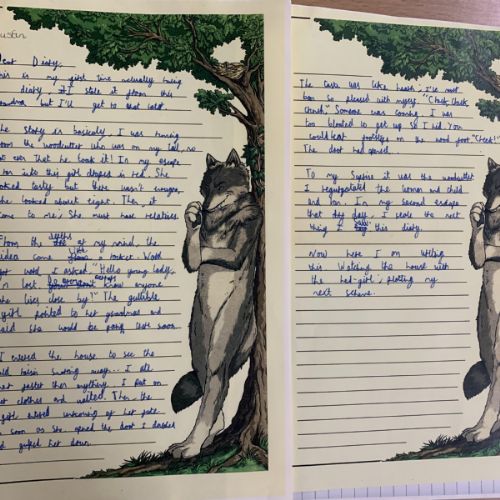 Justin
Dear Diary,
This is my first time actually using
diary, I stole it from this
grandma but I'll get to that later.
The story is basically, I was running
from the woodcutter who was on my tail, so
that he took it! In my escape
ran into this girl draped in red. She
looked tasty but there wasn't enough,
she looked about eight. Then, it
came to me, she must have relatives.
From the depths of my mind, the
idea came like a rocket. Word
for word, I asked "Hello young lady,
I'm lost, do you know anyone
who lives close by?" The gullible
girl pointed to her grandmas and
said she would be there soon.
I entered the house to see the
old snoring away... I ate
her faster than anything. I put on
her clothes and waited. Then, the
girl entered unknowing of her fate.
As soon as she opened the door I dashed
and gulped her down.
The was like heaven, I've never
been so pleased with myself. "Chack, Chack,
Chack." Someone was coming. I was
too bloated to get up so I hid. You
could hear footsteps on the wood floor "Creek!"
The door had opened.
To my suprise it was the woodcutter
I regurgitated the woman and child
and ran. In my second escape
that day, I stole the next
thing I saw this diary.
Now here I am writing
this. Watching the house with
the red-girl, plotting my
next scheme.